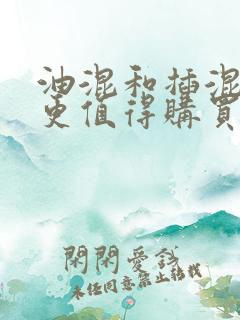 油混和插混
更值得購買
閑閑愛錢
未经同意禁止转载